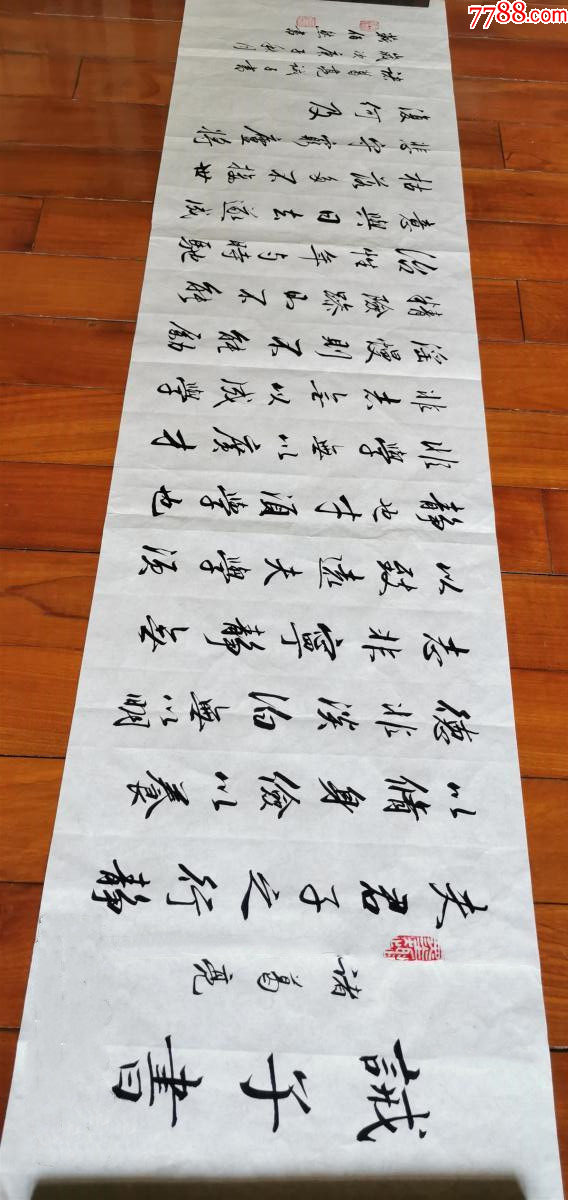 誡子書
諸葛亮
夫君子之行靜
以脩身儉以養
德非淡泊無以明
志非寧靜無
以致遠夫學須
靜也才須學也
非學無以廣才
非志無以成學
淫慢則不能勵
精險躁則不能
治性年与時馳
意與日去遂成
枯落多不接世
悲守窮廬將
復何及
諸葛亮誡子書
歲次庚子秋月
戴伯書
7788.com